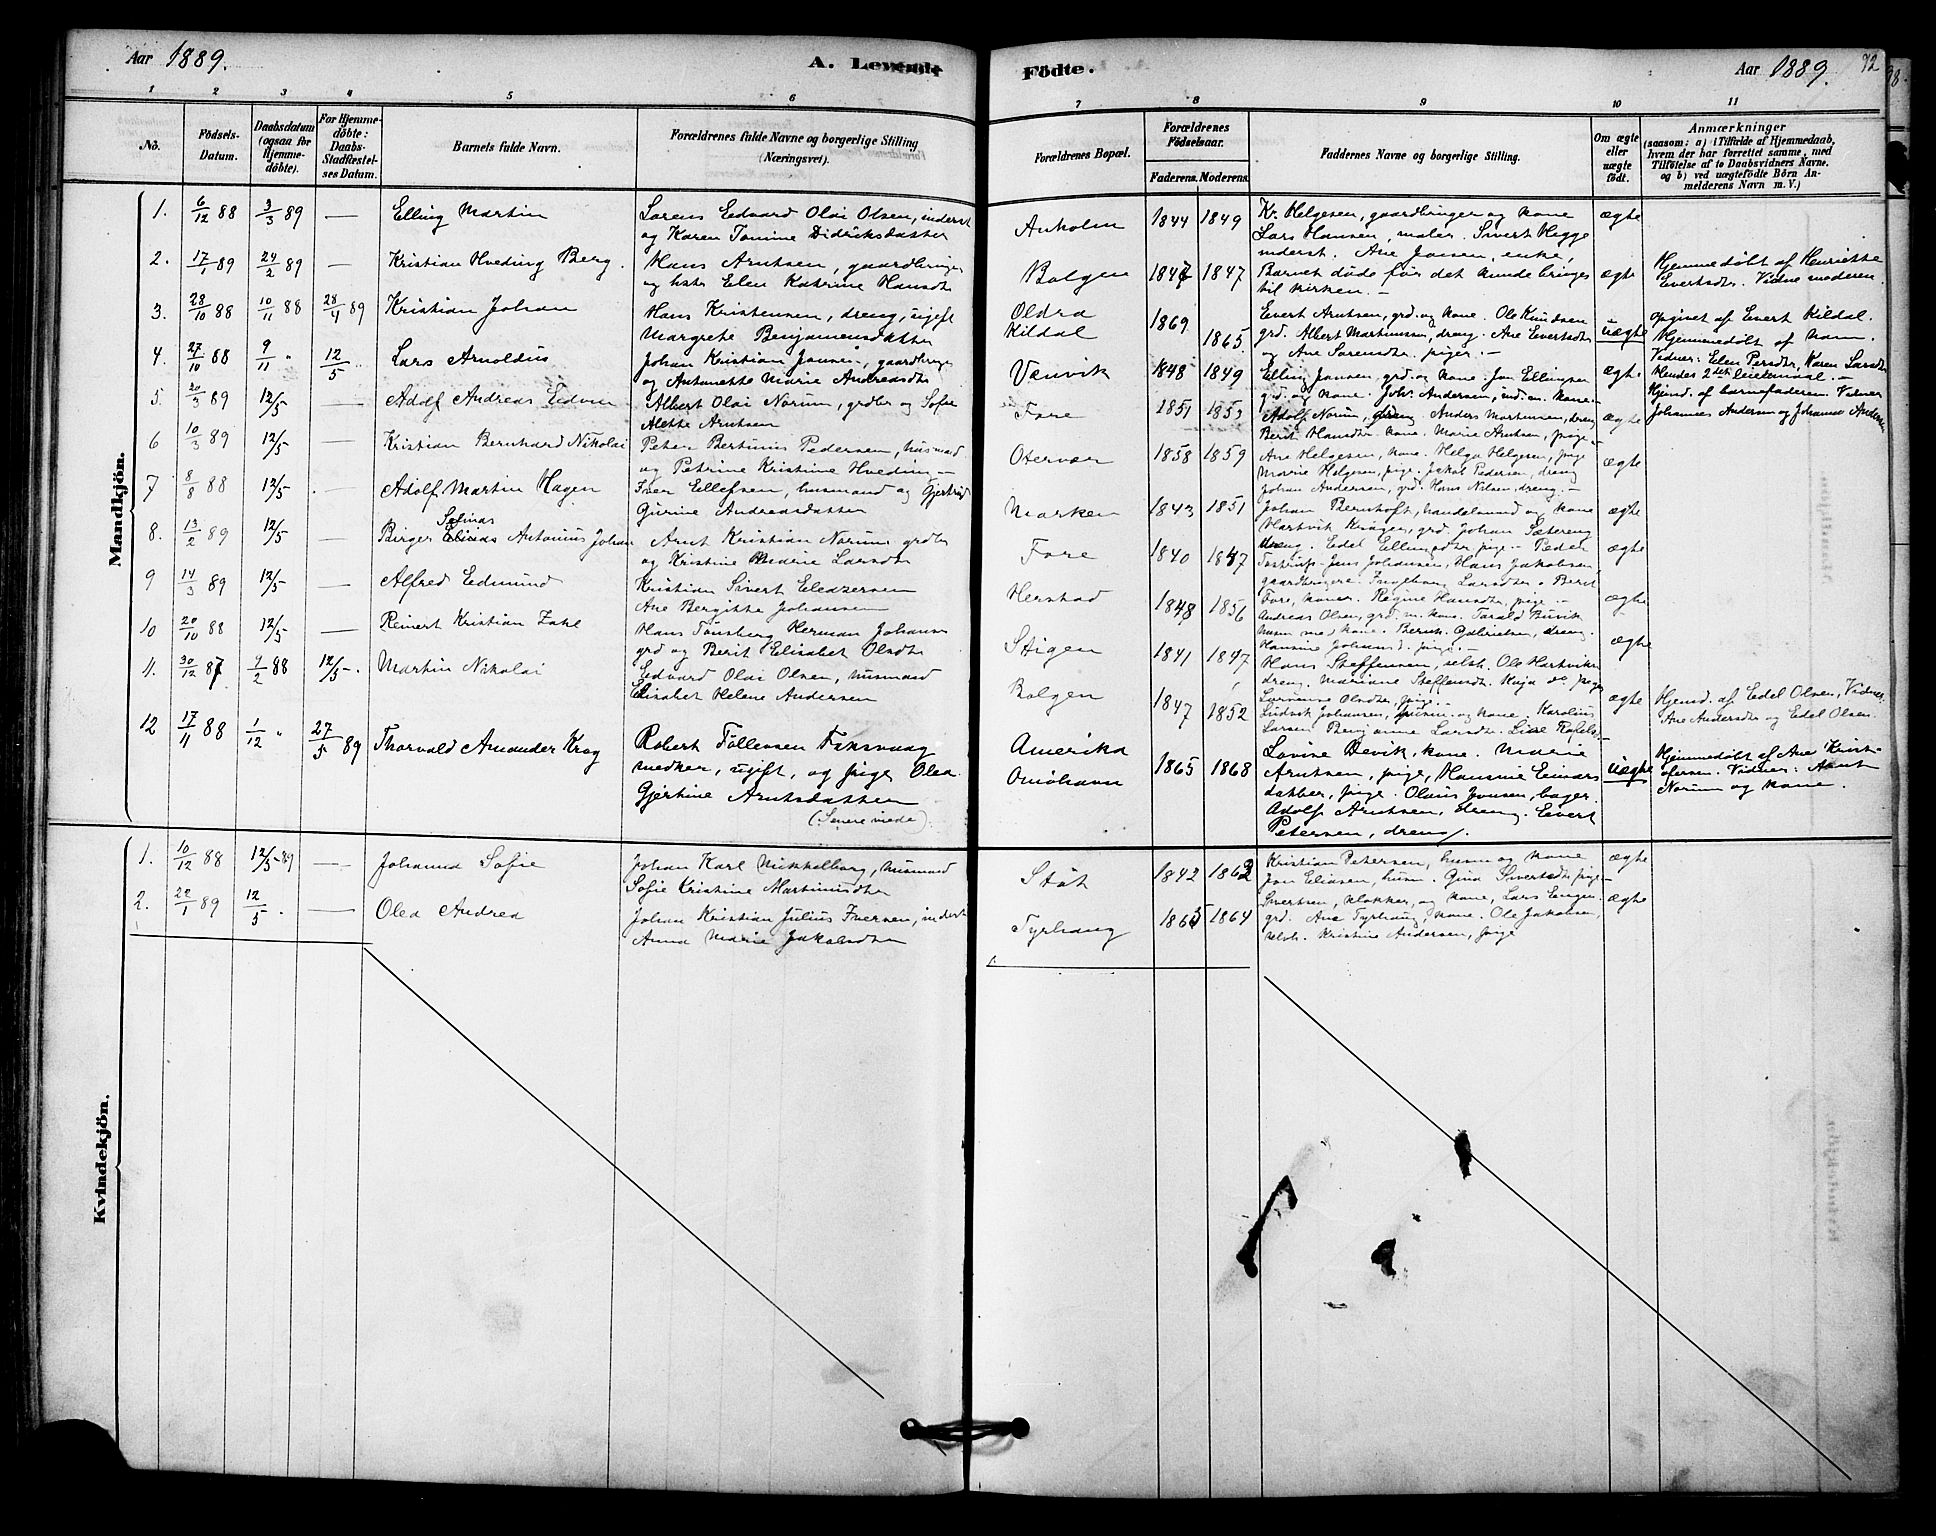 Aar 1889.
A. Levende
Födte.
Aar 1889.
72
1 2 3 4 5 6 7 8 9 10 11
No.
Födsels-Datum.
Daabsdatum (ogsaa for Hjemmedöbte).
For Hjemmedöbte: Daabs-Stadfæstelses Datum.
Barnets fulde Navn.
Forældrenes fulde Navne og borgerlige Stilling (Næringsvei).
Forældrenes Bopæl.
Forældrenes Födselsaar.
Faderens. Moderens.
Faddernes Navne og borgerlige Stilling.
Om ægte eller uægte födt.
Anmærkninger
(saasom: a) i Tilfælde af Hjemmedaab,
hvem der har forrettet samme, med
Tilföielse af to Daabsvidners Navne,
og b) ved uægtefödte Börn Anmelderens Navn m. V.)
Mandkjön.
1. 6/12 88 3/3 89 — Elling Martin
Lorens Edvard Olai Olsen, inderst
og Karen Tomine Didriksdatter
Anholm 1844 1849
Kr. Helgesen, gaardbruger og kone
Lars Hansen, maler. Sivert Hegge
inderst. Ane Jonsen, enke,
ægte
2. 17/1 89 24/2 89 — Kristian Hveding Berg.
Hans Arntsen, gaardbruger
og hstr Elen Katrine Hansdtr
Bolgen 1847 1847
Barnet døde før det kunde bringes
til kirken. —
ægte
Hjemmedøbt af Henriette
Evertsdtr. Vidne moderen.
3. 28/10 88 10/11 88 28/4 89 Kristian Johan
Hans Kristensen, dreng, ugift
Margrete Benjamensdatter
Oldra
Kildal
1869 1865
Evert Arntsen, grd. og kone. Ole Knudsen
grd. Albert Martinussen, dreng. Ane Evertsdtr
og Ane Sørensdtr, piger. —
uægte
opgivet af Evert Kildal.
Hjemmedøbt af ham.
Vidner: Elen Persdtr, Karen Larsdtr
4. 27/10 88 9/11 " 12/5 Lars Arnoldus
Johan Kristian Jonsen, gaardbruger
og Antonette Marie Andreasdtr
Vænvik 1848 1849
Elling Jansen, grd. og kone. Jon Ellingsen
grd. og kone. Joh. Andersen, ind. m. kone.
ægte
Hjemd. af barnefaderen. Vidner
Johannes Andersen og Johanna Andersen
5. 20/3 89 12/5 — Adolf Andreas Edvin
Albert Olai Norum, grdbr og Sofie
Alette Arntsen
Fore 1851 1853
Adolf Norum, dreng Anders Mortensen, dreng
Berit Hansdtr kone. Marie Arntsen, pige.
ægte
6 10/3 89 12/5 — Kristian Bernhard Nikolai
Peter Bertinus Pedersen, husmand
og Petrine Kristine Hveding —
Otervær 1858 1859
Ane Helgesen, kone. Helga Helgesen, pige
Marie Helgesen, pige. Jakob Pedersen, dreng
Johan Andersen, grd. Hans Nilsen, dreng. —
ægte
7 8/8 88 12/5 — Adolf Martin Hagen
Iver Ellefsen, husmand og Gjertrud
Gurine Andreasdatter
Marken 1843 1851
Johan Bernhoft, handelsmand og kone
Hartvik Krøger, grd Johan Sætereng
dreng. Edel Ellingsdtr pige.
ægte
8. 13/2 89 12/5 — Birger Antonius Johan
Arnt Kristian Norum grdbr
og Kristine Marie Larsdtr
Fore 1840 1847
Jens Johansen, Hans Jakobsen
gaardbrugere. Ingeborg Larsdtr. Berit
Fore, koner. Regine Hansdtr, pige. —
ægte
9 14/3 89 12/5 — Alfred Edmund
Kristian Sivert Eleazersen
Ane Bergitte Johansen
Herstad 1848 1856
Andreas Olsen, grd. m. kone. Tarald Buvik
husm med kone. Berick Gabrielsen, dreng.
Hansine Johansd. pige. —
ægte
10 20/10 88 12/5 — Reinert Kristian Zahl
Hans Tønsberg Herman Johansen
grd og Berit Elisabet Olsdtr
Stigen 1841 1847
Hans Steffensen, selst. Ole Hartviksen
dreng. Mariane Steffensdtr. Kaja do piger
Olsdtr, pige.
ægte
11. 30/12 87 9/2 88 12/5 . Martin Nikolai
Edvard Olai Olsen, husmand
Elisabet Helene Andersen
Bolgen 1847 1852
Ludvik Johansen, husm. og kone. Karolius
Larsen Benjamine Larsdtr. Lise Rafels.
ægte
Hjemd. af Edel Olsen, Vidner
Ane Andersdtr og Edel Olsen.
12 17/11 88 1/12 " 27/5 89 Thorvald Amandus Krog
Robert Tollevsen Faksvaag
ugift, og pige Olea
Gjertine Arntsdatter
Amerika
Omøhavn
1865 1868
Lovise Devik, kone. Marie
Arntsen, pige, Hansine Einars
datter, pige. Olaus Jonsen, bager.
Adolf Arntsen, dreng. Evert
Petersen, dreng.
uægte
Hjemmedøbt af Ane Krist-
ofersen. Vidner: Arnt
Norum og kone.
Kvindekjön.
1. 10/12 88 12/5 89 — Johanna Sofie
Johan Karl Mikkelborg, husmand
Sofie Kristine Martinusdtr
Støt 1842 1862
Kristian Petersen, husm og kone
Jon Eliasen, husm. Gina Sivertsdtr pige
ægte
2. 22/1 89 12/5 . — Olea Andrea
Johan Kristian Julius Iversen, inderst
Anna Marie Jakobsdtr
Tyrhaug 1865 1864
Sivertsen, klokker, og kone, Lars Engen
grd. Ane Tyrhaug, kone. Ole Jakobsen,
selst. Kristine Andersen, pige
ægte